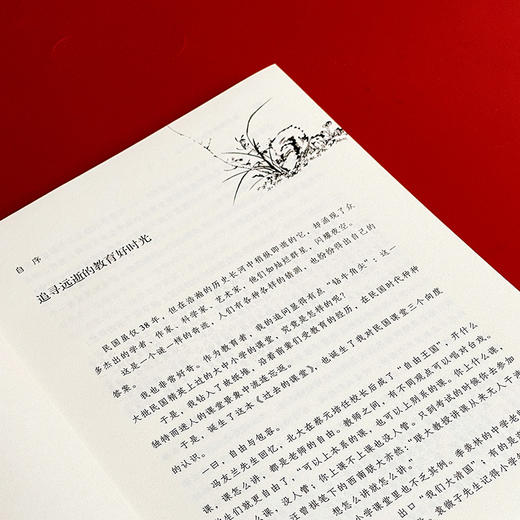 自 序
追寻远逝的教育好时光
民国虽仅38年，但在浩瀚的历史长河中稍纵即逝的它，却涌现了众
多杰出的学者、作家、科学家、艺术家，他们如灿烂群星，闪耀夜空。
这是一个谜一样的奇迹，人们有各种各样的猜测，也纷纷得出自己的
答案。
我也非常好奇。作为教育者，我的追问显得有点“钻牛角尖”：这一
大批民国精英上过的大中小学的课堂，究竟是怎样的呢？
于是，我钻入了故纸堆，沿着前辈们受教育的经历，在民国时代种种
独特而迷人的课堂景象中流连忘返。
于是，诞生了这本《过去的课堂》，也诞生了我对民国课堂三个向度
的认识。
一曰，自由与包容。
冯友兰先生回忆，北大在蔡元培任校长后成了“自由王国”，开什么
课，课怎么讲，都是老师的自由。教师之间，有不同观点可以唱对台戏。
学生们就更自由了，“可以上本系的课，也可以上别系的课。你上什么课，
课，没人管；你上课不上课也没人管。只到考试的时候你去参加
王曾祺笔下的西南联大亦然：“联大教授讲课从来无人干
想怎么讲就怎么讲。”
小学课堂里也不乏其例。季羡林的中学老
出口“我们大清国”；有的是
袁微子先生记得小学